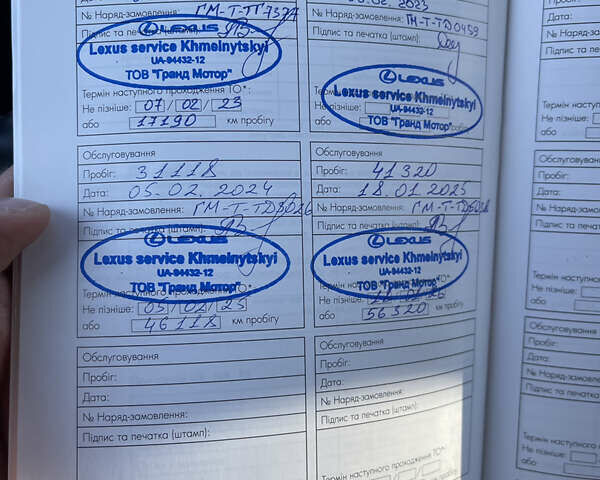 № Наряд-замовлення: ГМ-Т-ТГ7377
Підпис та печатка (штамп):
LEXUS
Lexus service Khmelnytskyi
UA-94432-12
ТОВ "Гранд Мотор"
Термін наступного проходження ТО*:
Не пізніше: 07/02/23
або 17190 км пробігу
2023
№ Наряд-замовлення: ГМ-Т-ТД0459
Підпис та печатка (штамп):
LEXUS
Lexus service Khmelnytskyi
UA-94432-12
ТОВ "Гранд Мотор"
Не пізніше:
або
Обслуговування
Пробіг: 31118
Дата: 05.02.2024
№ Наряд-замовлення:
Підпис та печатка (штамп):
LEXUS
Lexus service Khmelnytskyi
UA-94432-12
ТОВ "Гранд Мотор"
Термін наступного проходження ТО*:
Не пізніше: 05/02/25
або 46118 км пробігу
Обслуговування
Пробіг: 41320
Дата: 18.01.2025
№ Наряд-замовлення:
Підпис та печатка (штамп):
LEXUS
Lexus service Khmelnytskyi
UA-94432-12
ТОВ "Гранд Мотор"
Не пізніше:
або 56320 км пробігу
Обслуговування
Пробіг:
Дата:
№ Наряд-замовлення:
Підпис та печатка (штамп):
Обслуговування
Пробіг:
Дата:
№ Наряд-замовлення:
Підпис та печатка (штамп):
Термін наступного проходження ТО*:
Дата:
№ Наряд-замовле
Підпис та печатка
Не пізніше:
або
Обслуговування
Пробіг:
Дата:
№ Наряд-замовлен
Підпис та печатка
Термін наступно
Не пізніше:
або
Обслуговування
Пробіг:
Дата:
№ Наряд-замовлен
Підпис та печатка (
Термін наступного
Не пізніше:
або